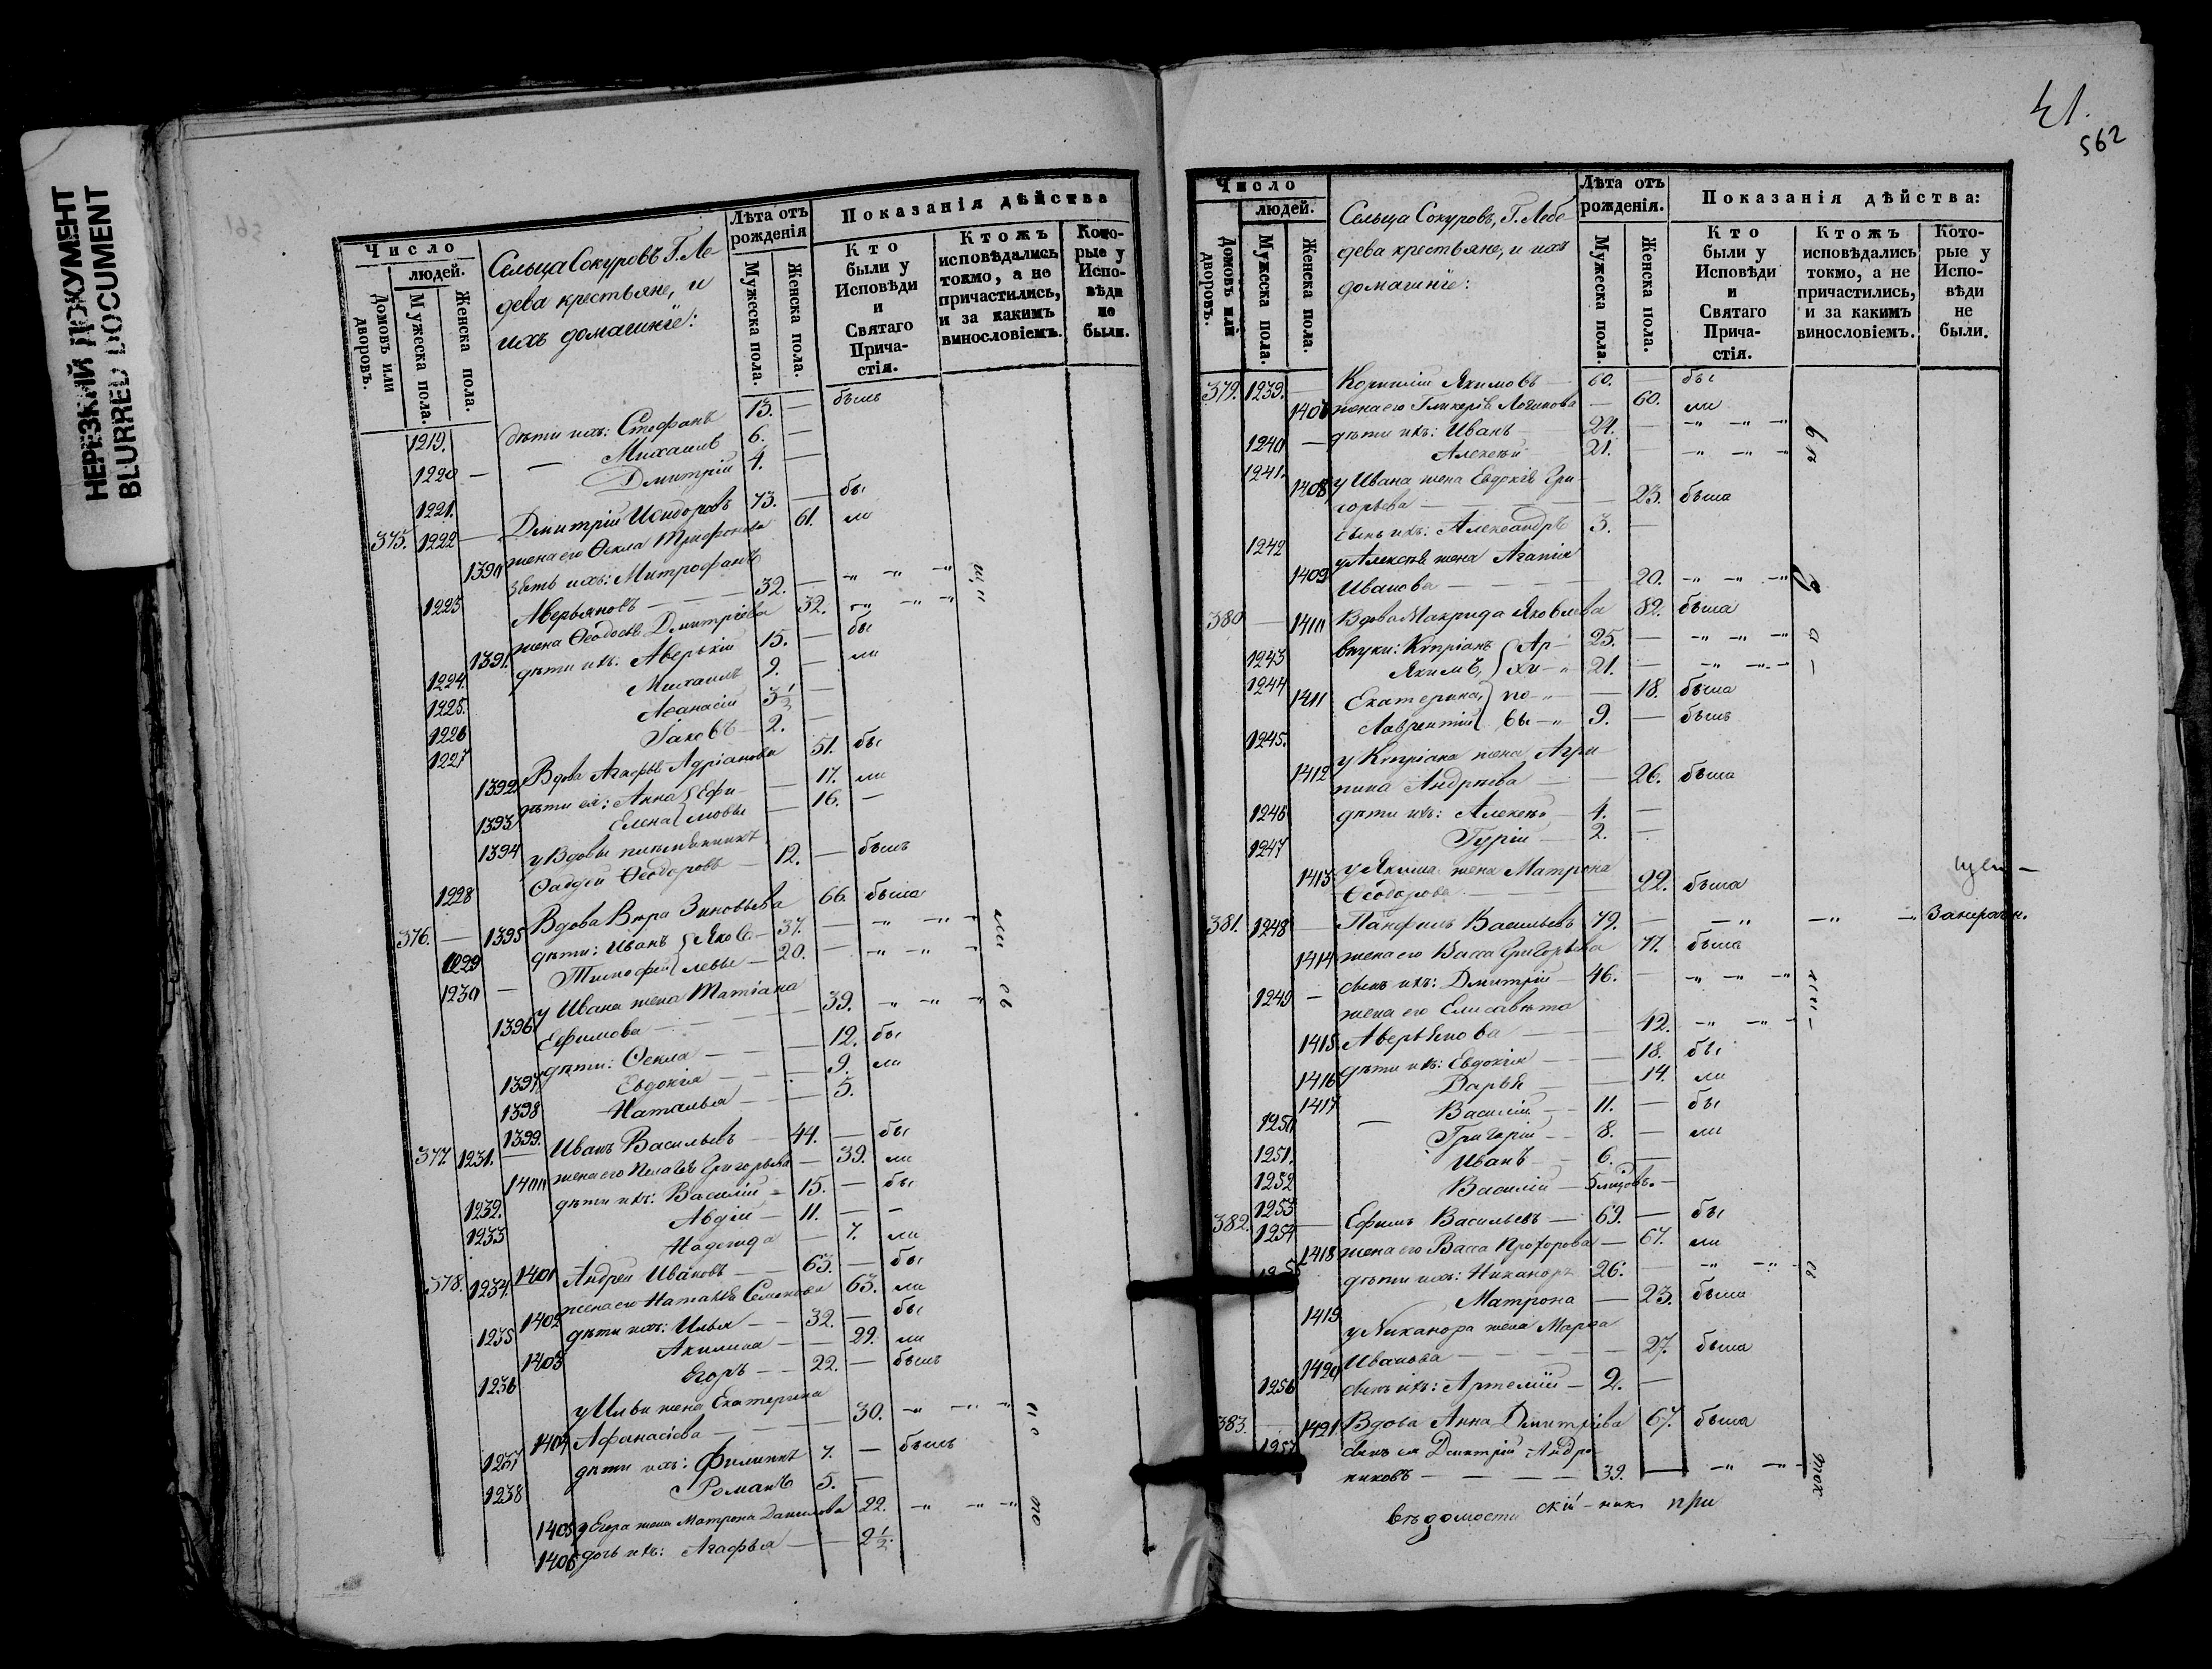 НЕРЕЗКИЙ ДОКУМЕНТ
BLURRED DOCUMENT
Число
людей.
Домовъ или дворовъ.
Мужеска пола.
Женска пола.
Сельца Сокуровъ Г. Ле-
дева крестьяне, и
ихъ домашніе:
Лѣта отъ рожденія
Мужеска пола.
Женска пола.
Показанія дѣйства
Кто были у Исповѣди и Святаго Причастія.
Ктожъ исповѣдались токмо, а не причастились, и за какимъ винословіемъ.
Которые у Исповѣди не были.
1219. дѣти ихъ: Стефанъ 13. — былъ
1220 — — Михаилъ 6. —
1221. Дмитрій 4. —
375. 1222 — Дмитрій Исидоровъ 73. — бы
1390 жена его Ѳекла Трифонова 61. ли
зять ихъ: Митрофанъ
1223 Аверьяновъ — 32. —
1391. жена Ѳеодосья Дмитріева 32.
1224. дѣти ихъ: Аверькій 15. — бы
1225. Михаилъ 9. — ли
1226 Аѳанасій 3½ —
1227 Іаковъ 2. —
1392 Вдова Агафья Адріанова 51. бы
1393 дѣти ея: Анна Ефи- — 17. ли
1394 Елена мовы — 16. —
у Вдовы племянникъ
1228 Ѳаддей Ѳеодоровъ — 12. — былъ
376. — 1395 Вдова Вѣра Зиновьева 66. была
1229 дѣти: Иванъ Яков- 37. —
1230 — Тимофей левы — 20. —
у Ивана жена Татіана
1396 Ефимова — 39.
1397 дѣти: Ѳекла — 12. бы
1398 Евдокія — 9. ли
1399. Наталья — 5.
377. 1231. — Иванъ Васильевъ — 44. — бы
1400 жена его Пелагея Григорьева — 39. ли
1232. дѣти ихъ: Василій — 15. — бы
1233 Авдій — 11. — —
1401 Надежда — 7. ли
378. 1234. Андрей Ивановъ — 63. — бы
1402 жена его Наталья Семенова 63. ли
1235 дѣти ихъ: Илья — 32. — бы
1403 Акилина — 29. ли
1236 Егоръ — 22. — былъ
у Ильи жена Екатерина
1404 Афанасіева — 30.
1237 дѣти ихъ: Филиппъ 7. — былъ
1238 Романъ 5. —
1405 у Егора жена Матрона Данилова 22.
1406 дочь ихъ: Агафья — 2½.
41.
562
Число
людей.
Домовъ или дворовъ.
Мужеска пола.
Женска пола.
Сельца Сокуровъ, Г. Лебе-
дева крестьяне, и ихъ
домашніе:
Лѣта отъ рожденія.
Мужеска пола.
Женска пола.
Показанія дѣйства:
Кто были у Исповѣди и Святаго Причастія.
Ктожъ исповѣдались токмо, а не причастились, и за какимъ винословіемъ.
Которые у Исповѣди не были.
379. 1239. — Корнилій Якимовъ — 60. бы
1407 жена его Гликерія Логинова — 60. ли
1240 — дѣти ихъ: Иванъ — 24. —
1241. Алексѣй — 21. —
1408 у Ивана жена Евдокія Гри-
горьева — 23. была
1242 сынъ ихъ: Александръ 3. —
у Алексѣя жена Агапія
1409 Иванова — 20.
380 — 1410 Вдова Макрида Яковлева 82. была
1243 внуки: Кипріанъ Ар- 25. —
1244 Якимъ, хи- 21. —
1411 Екатерина, по- — 18. была
1245. Лаврентій вы- 9. — былъ
у Кипріана жена Агри-
1412 пина Андреева — 26. была
1246 дѣти ихъ: Алексѣй — 4. —
1247 Гурій — 2. —
1413 у Якима жена Матрона
Ѳеодорова — 22. была
381. 1248 — Панфилъ Васильевъ 79. —
1414 жена его Васса Григорьева 77. была
1249 — сынъ ихъ: Дмитрій — 46. —
жена его Елисавета
1415 Аверьянова — 42.
1416 дѣти ихъ: Евдокія — 18. бы
1417 Дарья — 14. ли
1250 — Василій — 11. — бы
1251. Григорій — 8. — ли
1252 Иванъ — 6. —
1253 Василій — 5 мѣсяцовъ —
382. 1254 — Ефимъ Васильевъ — 69. — бы
1418 жена его Васса Прохорова — 67. ли
дѣти ихъ: Никаноръ 26. —
1419 Матрона — 23. была
у Никанора жена Марѳа
1420 Иванова — 27. была
1256 сынъ ихъ: Артемій — 2. —
383. 1421 Вдова Анна Дмитріева 67. была
1257 сынъ ея Дмитрій Андро-
никовъ — 39. —
вѣдомости при